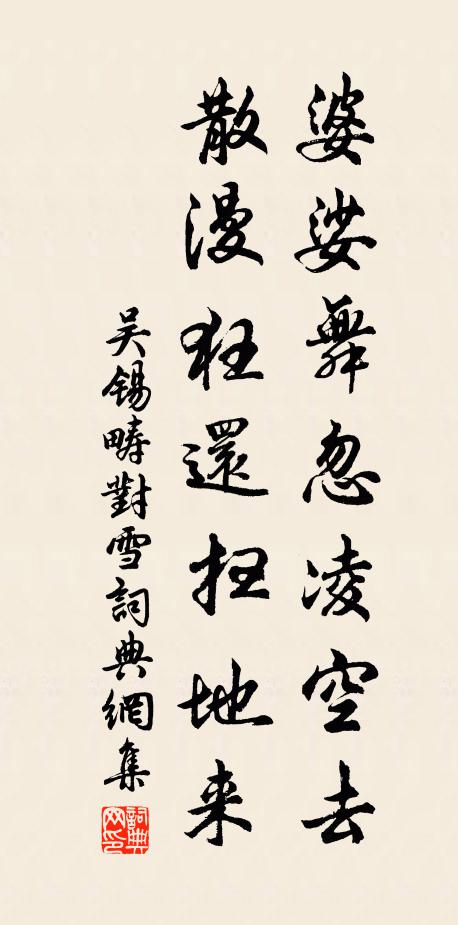 婆娑舞忽凌空去
散漫狂還扫地来
吴锡畴對雪詞典網集
詞典网印